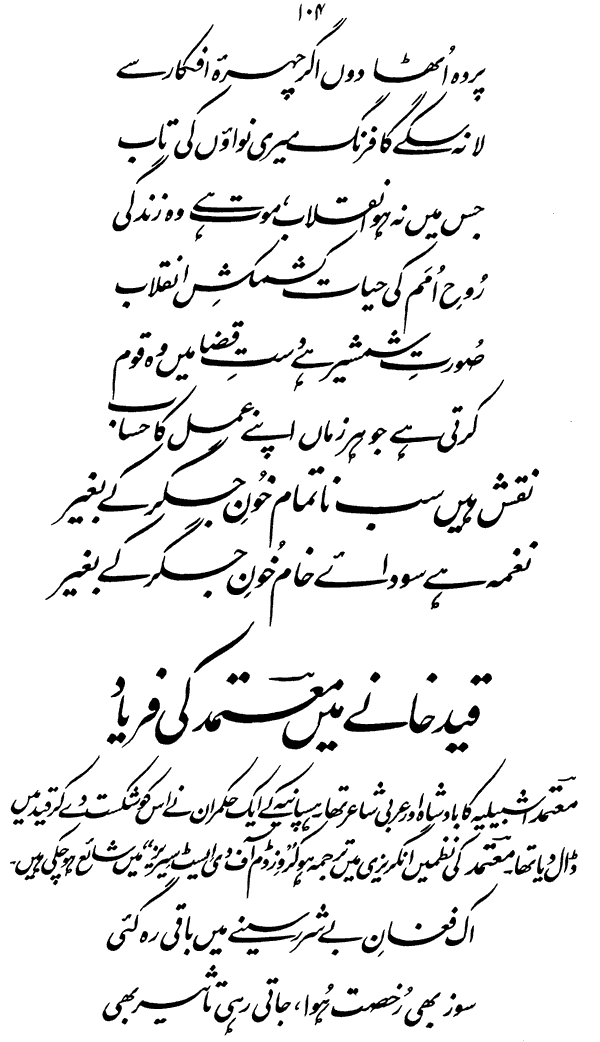 ۱۰۴
پردہ اُٹھا دوں اگر چہرۂ افکار سے
لا نہ سکے گا فرنگ میری نواؤں کی تاب
جس میں نہ ہو انقلاب، موت ہے وہ زندگی
رُوحِ اُمَم کی حیات کشمکشِ انقلاب
صُورتِ شمشیر ہے دستِ قضا میں وہ قوم
کرتی ہے جو ہر زماں اپنے عمل کا حساب
نقش ہیں سب ناتمام خُونِ جگر کے بغیر
نغمہ ہے سودائے خام خُونِ جگر کے بغیر
قید خانے میں معتمدؔ کی فریاد
معتمدؔ اشبیلیہ کا بادشاہ اور عربی شاعر تھا۔ ہسپانیہ کے ایک حکمران نے اس کو شکست دے کر قید میں
ڈال دیا تھا۔ معتمدؔ کی نظمیں انگریزی میں ترجمہ ہو کر ”وزڈم آف دی ایسٹ سیریز“ میں شائع ہو چکی ہیں۔
اک فغانِ بے شرر سینے میں باقی رہ گئی
سوز بھی رُخصت ہُوا، جاتی رہی تاثیر بھی